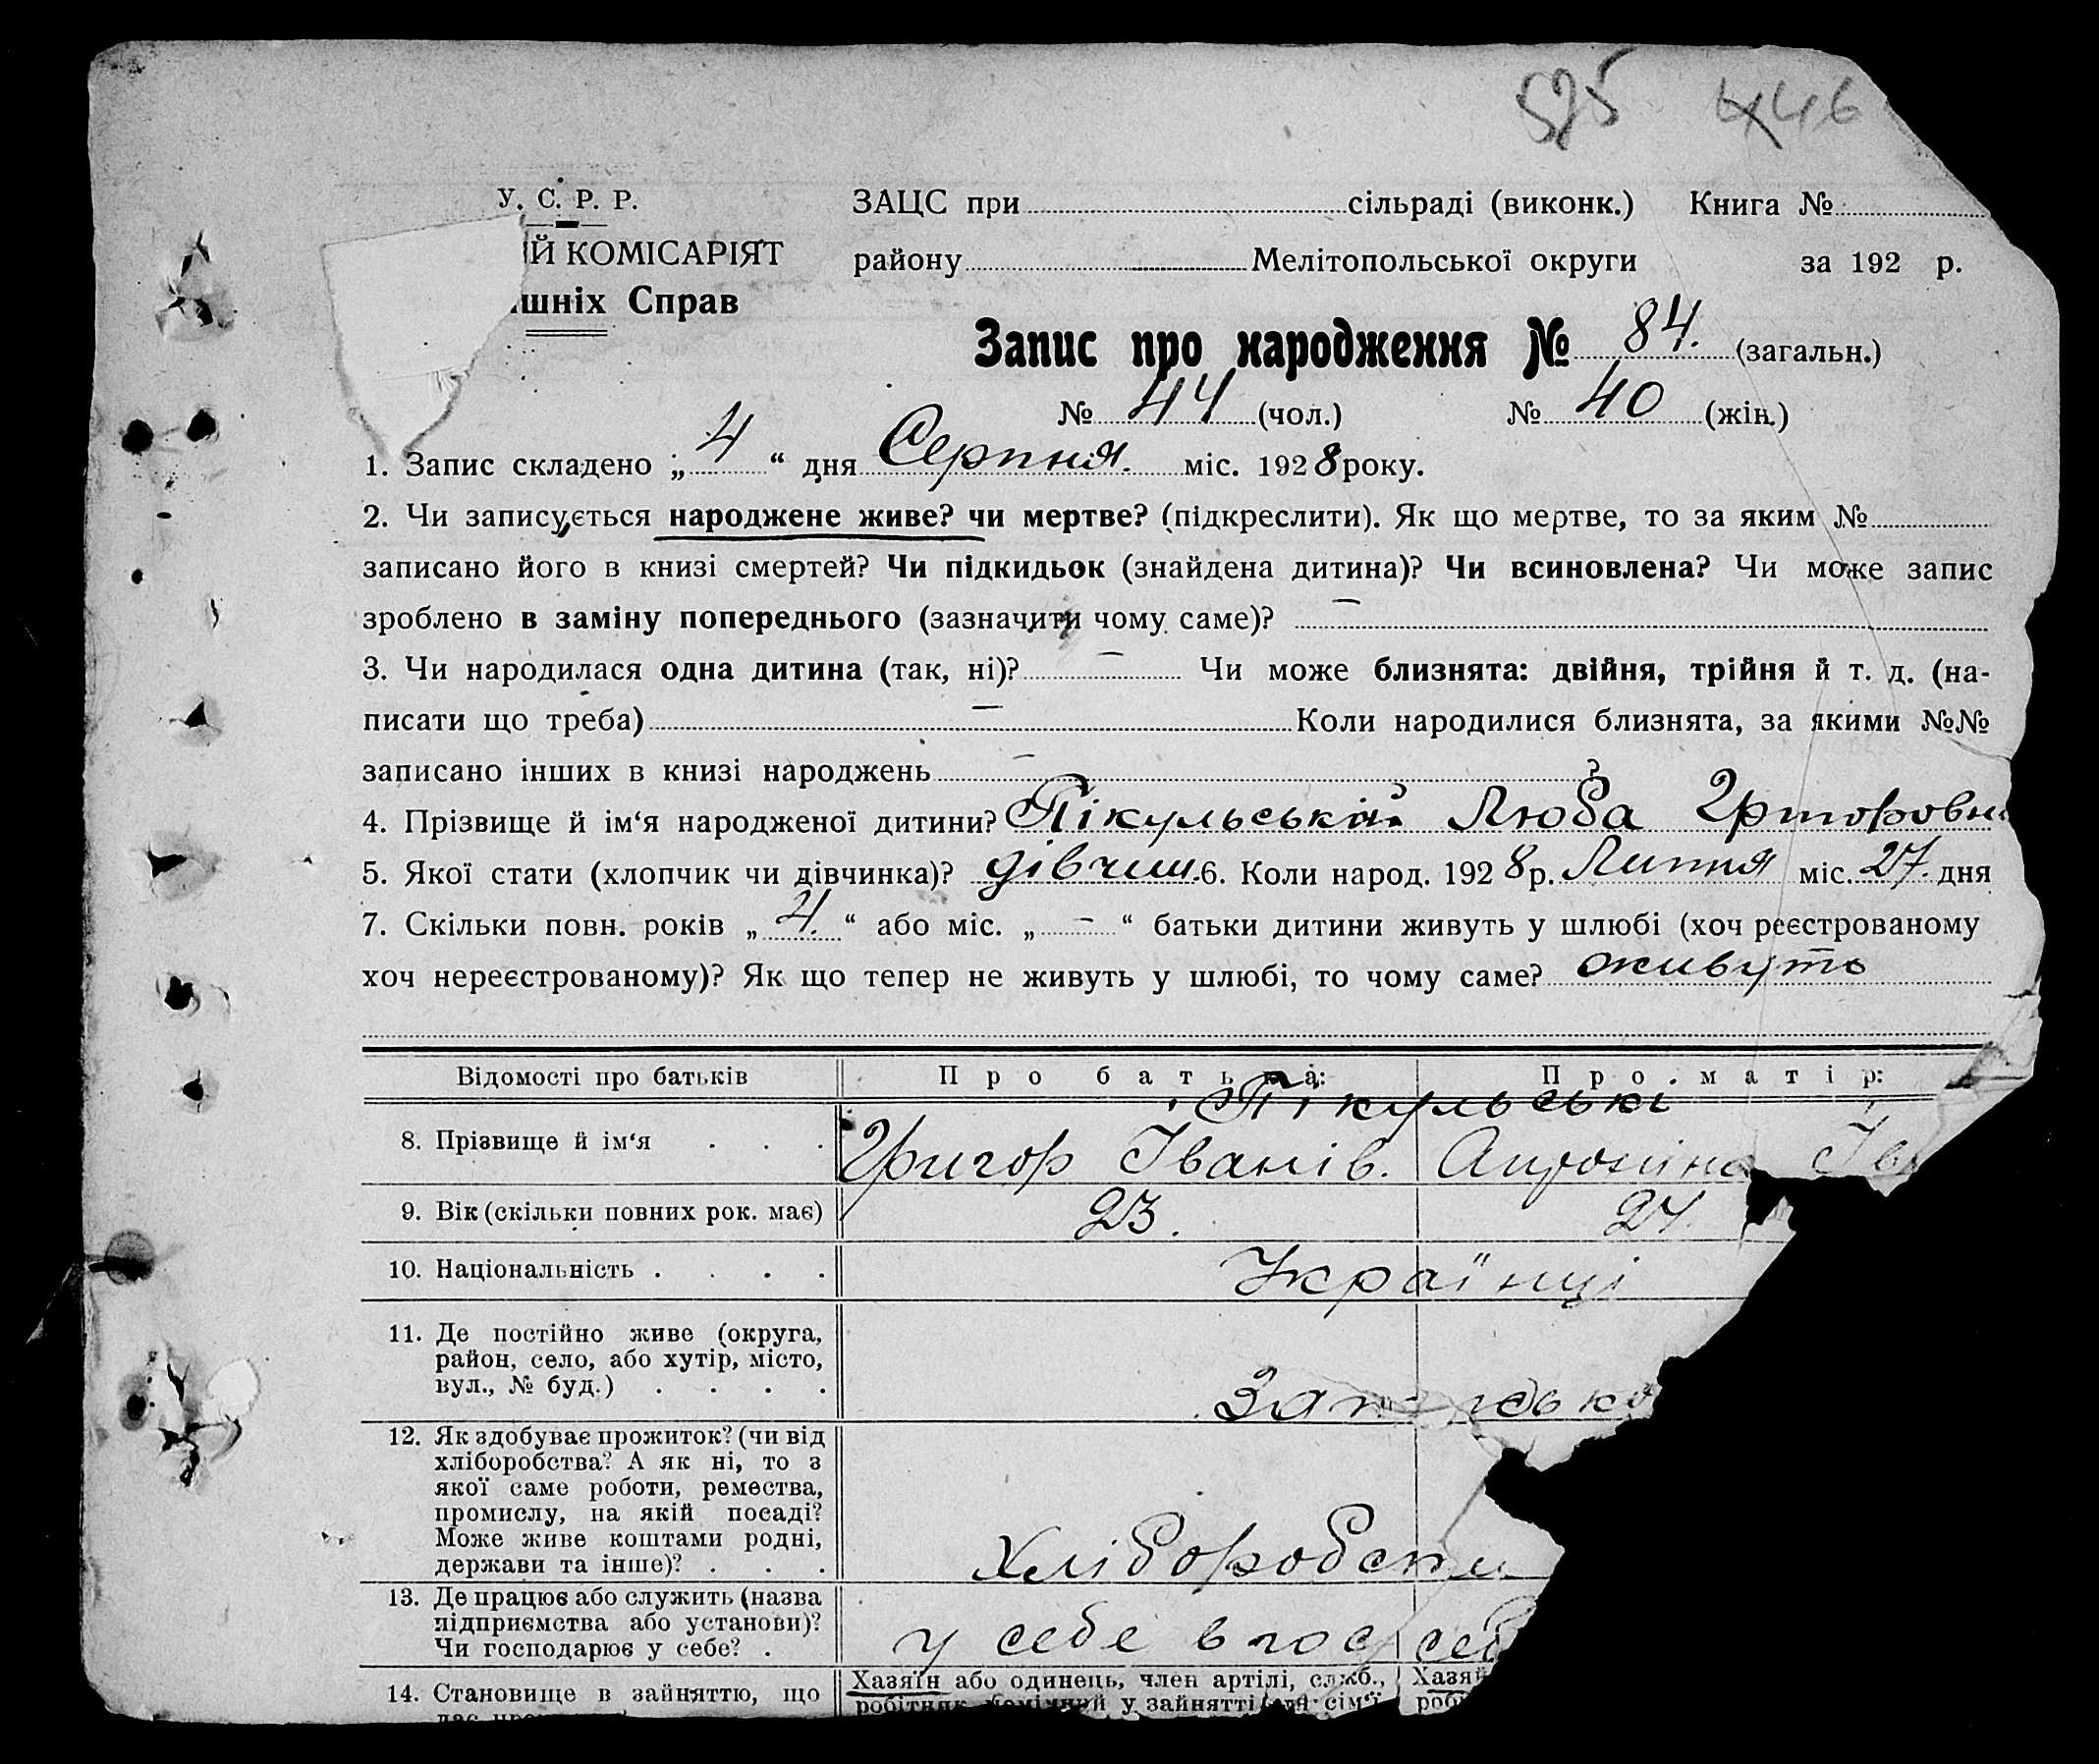 525 446
У. С. Р. Р. ЗАЦС при сільраді (виконк.) Книга №
ІЙ КОМІСАРІЯТ району Мелітопольської округи за 192 р.
шніх Справ
Запис про народження № 84. (загальн.)
№ 44 (чол.) № 40 (жін.)
1. Запис складено „4“ дня Серпня. міс. 1928 року.
2. Чи записується народжене живе? чи мертве? (підкреслити). Як що мертве, то за яким №
записано його в книзі смертей? Чи підкидьок (знайдена дитина)? Чи всиновлена? Чи може запис
зроблено в заміну попереднього (зазначити чому саме)? —
3. Чи народилася одна дитина (так, ні)? — Чи може близнята: двійня, трійня й т. д. (на-
писати що треба) — Коли народилися близнята, за якими №№
записано інших в книзі народжень — ?
4. Прізвище й ім‘я народженої дитини? Люба
5. Якої стати (хлопчик чи дівчинка)? дівчин. 6. Коли народ. 1928 р. Липня міс. 27. дня
7. Скільки повн. років „4.“ або міс. „—“ батьки дитини живуть у шлюбі (хоч реєстрованому
хоч нереєстрованому)? Як що тепер не живуть у шлюбі, то чому саме? живуть
Відомості про батьків Про батька: Про матір:
Пікульські
8. Прізвище й ім‘я . . . Григор Іванів. Ів
9. Вік (скільки повних рок. має) 23. 24.
10. Національність . . . . Українці
11. Де постійно живе (округа,
район, село, або хутір, місто,
вул., № буд.) . . . .
12. Як здобуває прожиток? (чи від
хліборобства? А як ні, то з
якої саме роботи, ремества,
промислу, на якій посаді?
Може живе коштами родні,
держави та інше)? . . . Хліборобств
13. Де працює або служить (назва
підприємства або установи)?
Чи господарює у себе? . у себе в гос себ
14. Становище в зайняттю, що Хазяїн або одинець, член артілі, служб., Хазяї
робітник у зайнятті сім‘ї роб